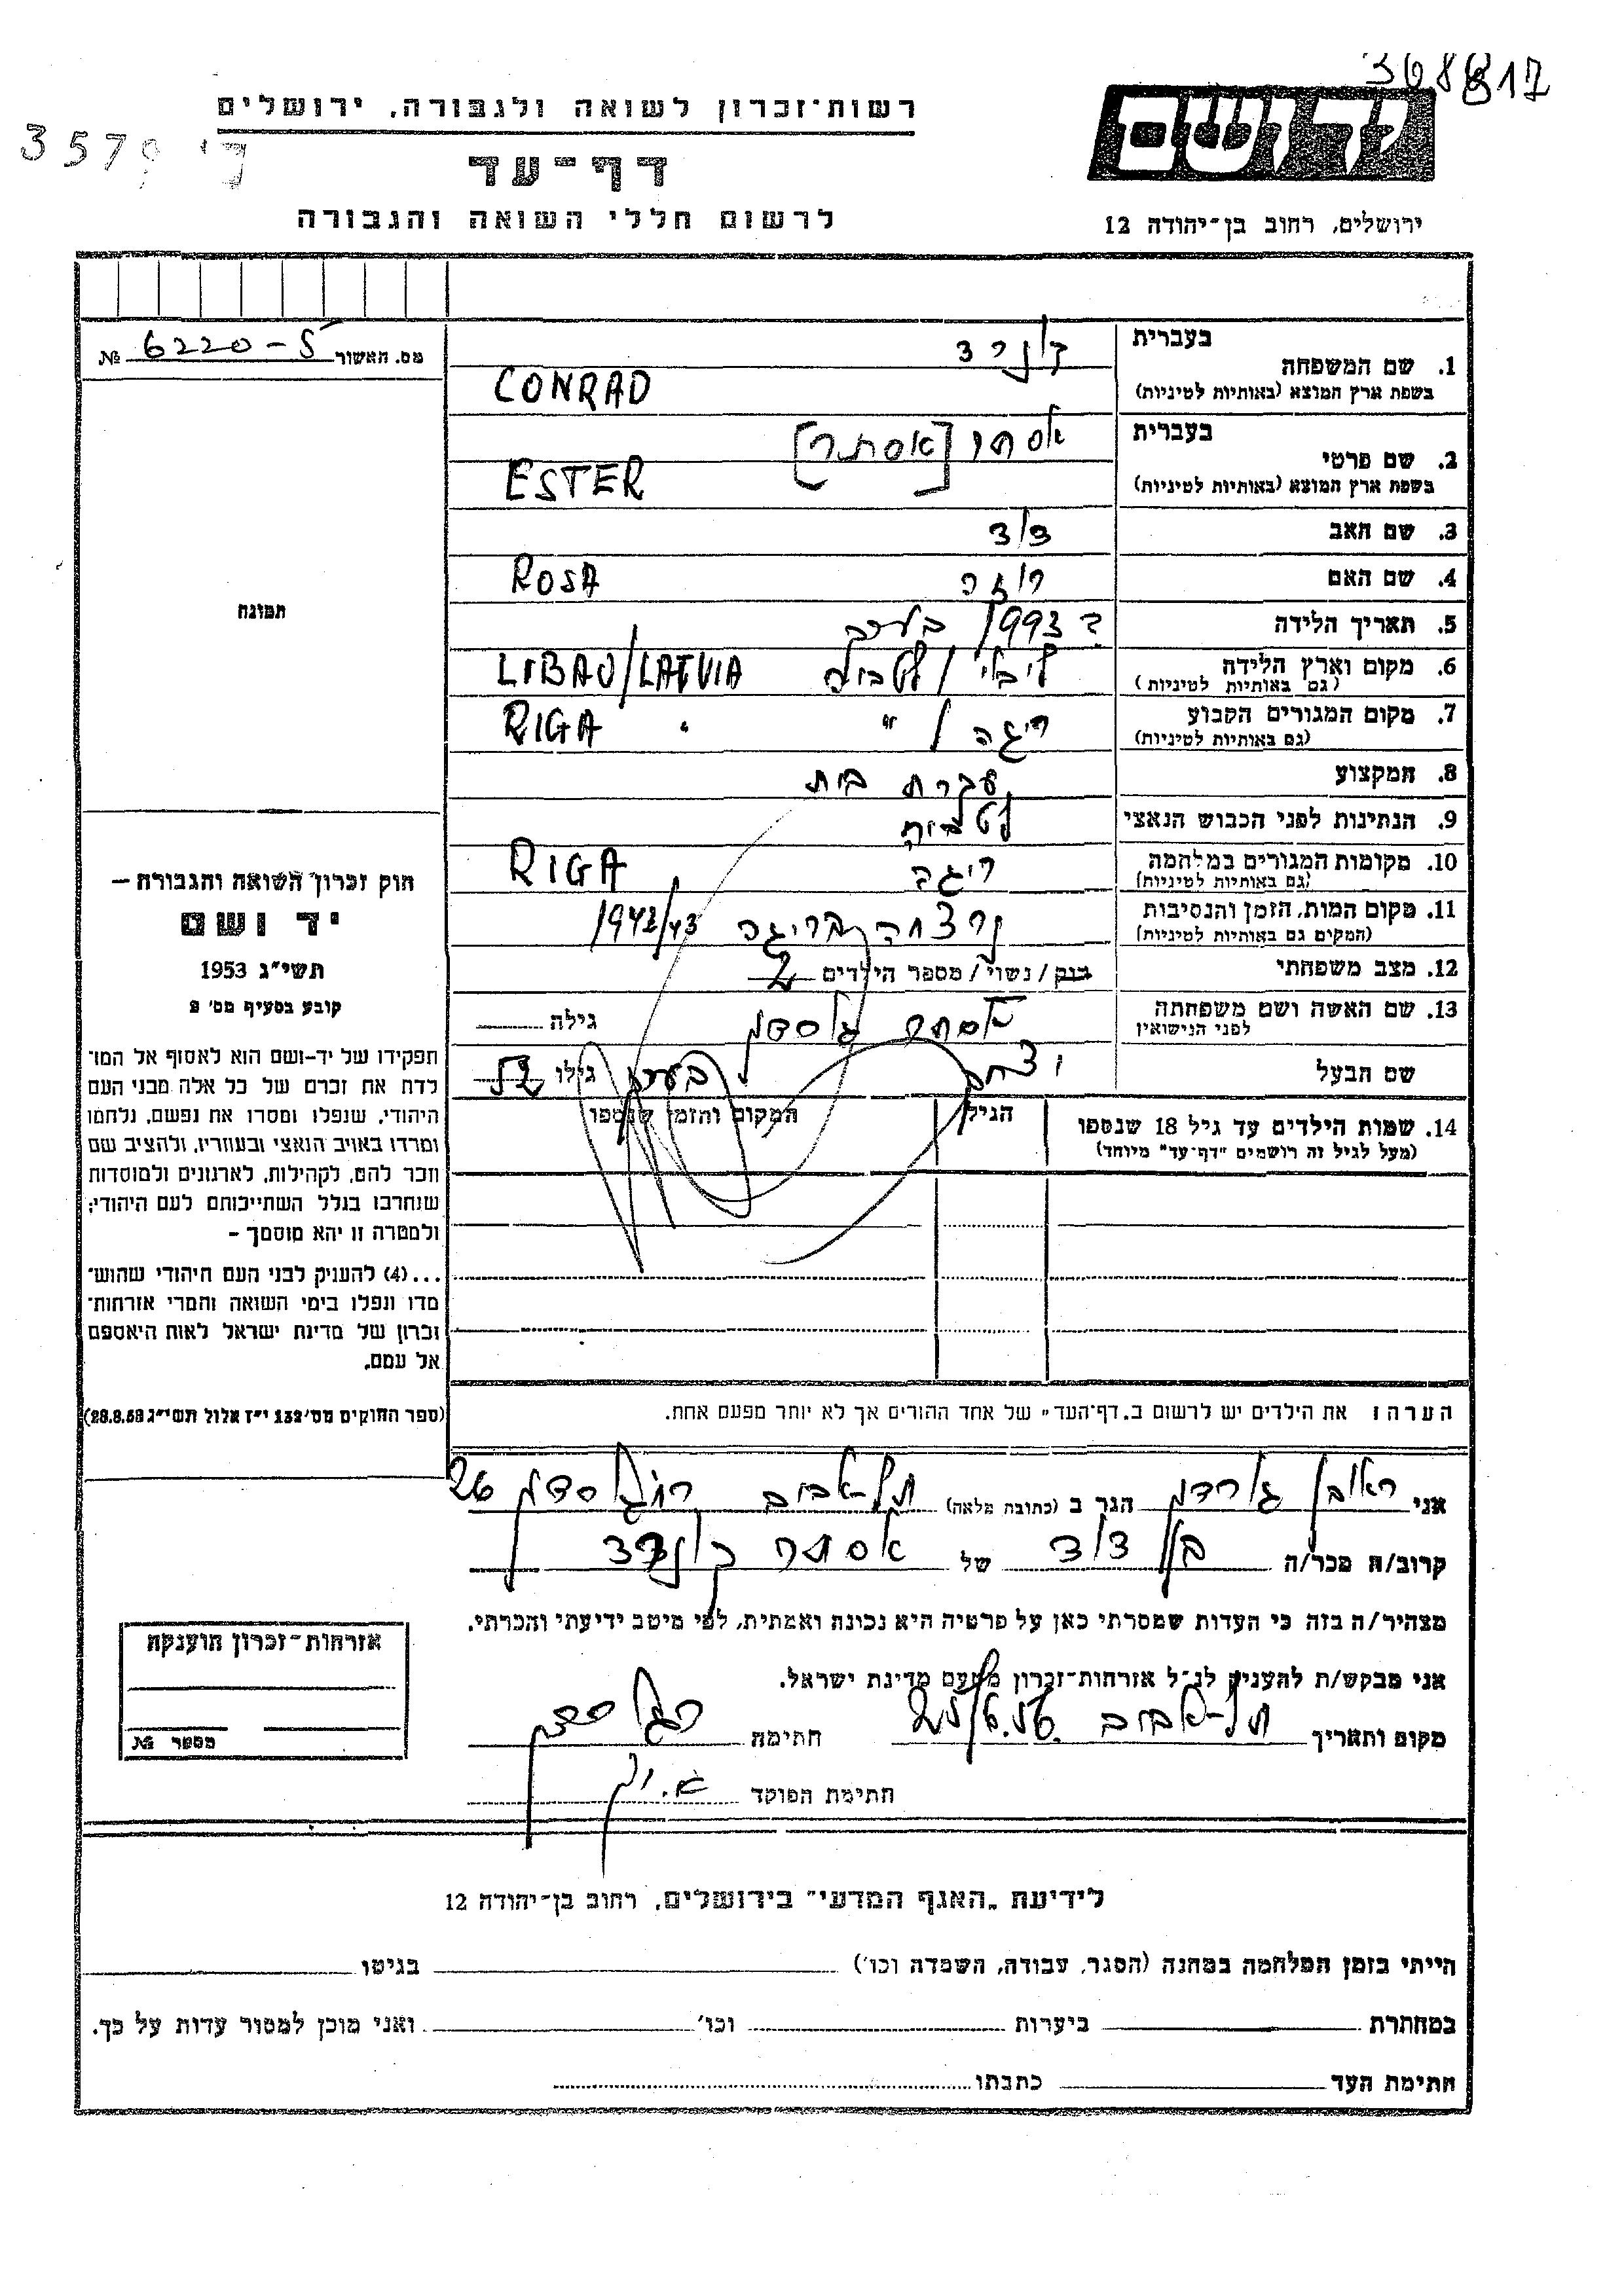 368817
רשות־זכרון לשואה ולגבורה, ירושלים
3579
דף־עד
לרשום חללי השואה והגבורה
ידושם
ירושלים, רחוב בן־יהודה 12
מס. האשור № 6220-5
תמונה
חוק זכרון השואה והגבורה —
יד ושם
תשי״ג 1953
קובע בסעיף מס׳ 2
תפקידו של יד-ושם הוא לאסוף אל המו־
לדת את זכרם של כל אלה מבני העם
היהודי, שנפלו ומסרו את נפשם, נלחמו
ומרדו באויב הנאצי ובעוזריו, ולהציב שם
וזכר להם, לקהילות, לארגונים ולמוסדות
שנחרבו בגלל השתייכותם לעם היהודי;
ולמטרה זו יהא מוסמך –
...(4) להעניק לבני העם היהודי שהוש־
מדו ונפלו בימי השואה והמרי אזרחות־
זכרון של מדינת ישראל לאות היאספם
אל עמם.
(ספר החוקים מס׳ 132 י״ז אלול תשי״ג 28.8.53)
1. שם המשפחה בעברית קונרד
בשפת ארץ המוצא (באותיות לטיניות) CONRAD
2. שם פרטי בעברית אסתר [אסתר]
בשפת ארץ המוצא (באותיות לטיניות) ESTER
3. שם האב דוד
4. שם האם רוזה ROSA
5. תאריך הלידה ? 1993 בערך
6. מקום וארץ הלידה ליבוי / לטביה LIBAU/LATVIA
(גם באותיות לטיניות)
7. מקום המגורים הקבוע ריגה / " RIGA "
(גם באותיות לטיניות)
8. המקצוע עקרת בית
9. הנתינות לפני הכבוש הנאצי לטבית
10. מקומות המגורים במלחמה ריגה RIGA
(גם באותיות לטיניות)
11. מקום המות, הזמן והנסיבות נרצחה בריגה 1942/43
(המקום גם באותיות לטיניות)
12. מצב משפחתי רווק / נשוי / מספר הילדים 2
13. שם האשה ושם משפחתה אסתר גולדסמן גילה
לפני הנישואין
שם הבעל יצחק בערך גילו 52
14. שמות הילדים עד גיל 18 שנספו הגיל המקום והזמן שנספו
(מעל לגיל זה רושמים "דף־עד" מיוחד)
הערה: את הילדים יש לרשום ב„דף־העד" של אחד ההורים אך לא יותר מפעם אחת.
אני ראובן הגר ב (כתובת מלאה) תל-אביב 26
קרוב/ה מכר/ה בן דוד של אסתר קונרד
מצהיר/ה בזה כי העדות שמסרתי כאן על פרטיה היא נכונה ואמתית, לפי מיטב ידיעתי והכרתי.
אני מבקש/ת להעניק לנ״ל אזרחות־זכרון מטעם מדינת ישראל.
מקום ותאריך תל-אביב 25/6.56 חתימה
חתימת הפוקד
אזרחות־זכרון הוענקה
מספר №
לידיעת „האגף המדעי" בירושלים, רחוב בן־יהודה 12
הייתי בזמן המלחמה במחנה (הסגר, עבודה, השמדה וכו׳) בגיטו
במחתרת ביערות וכו׳ ואני מוכן למסור עדות על כך.
חתימת העד כתבתו